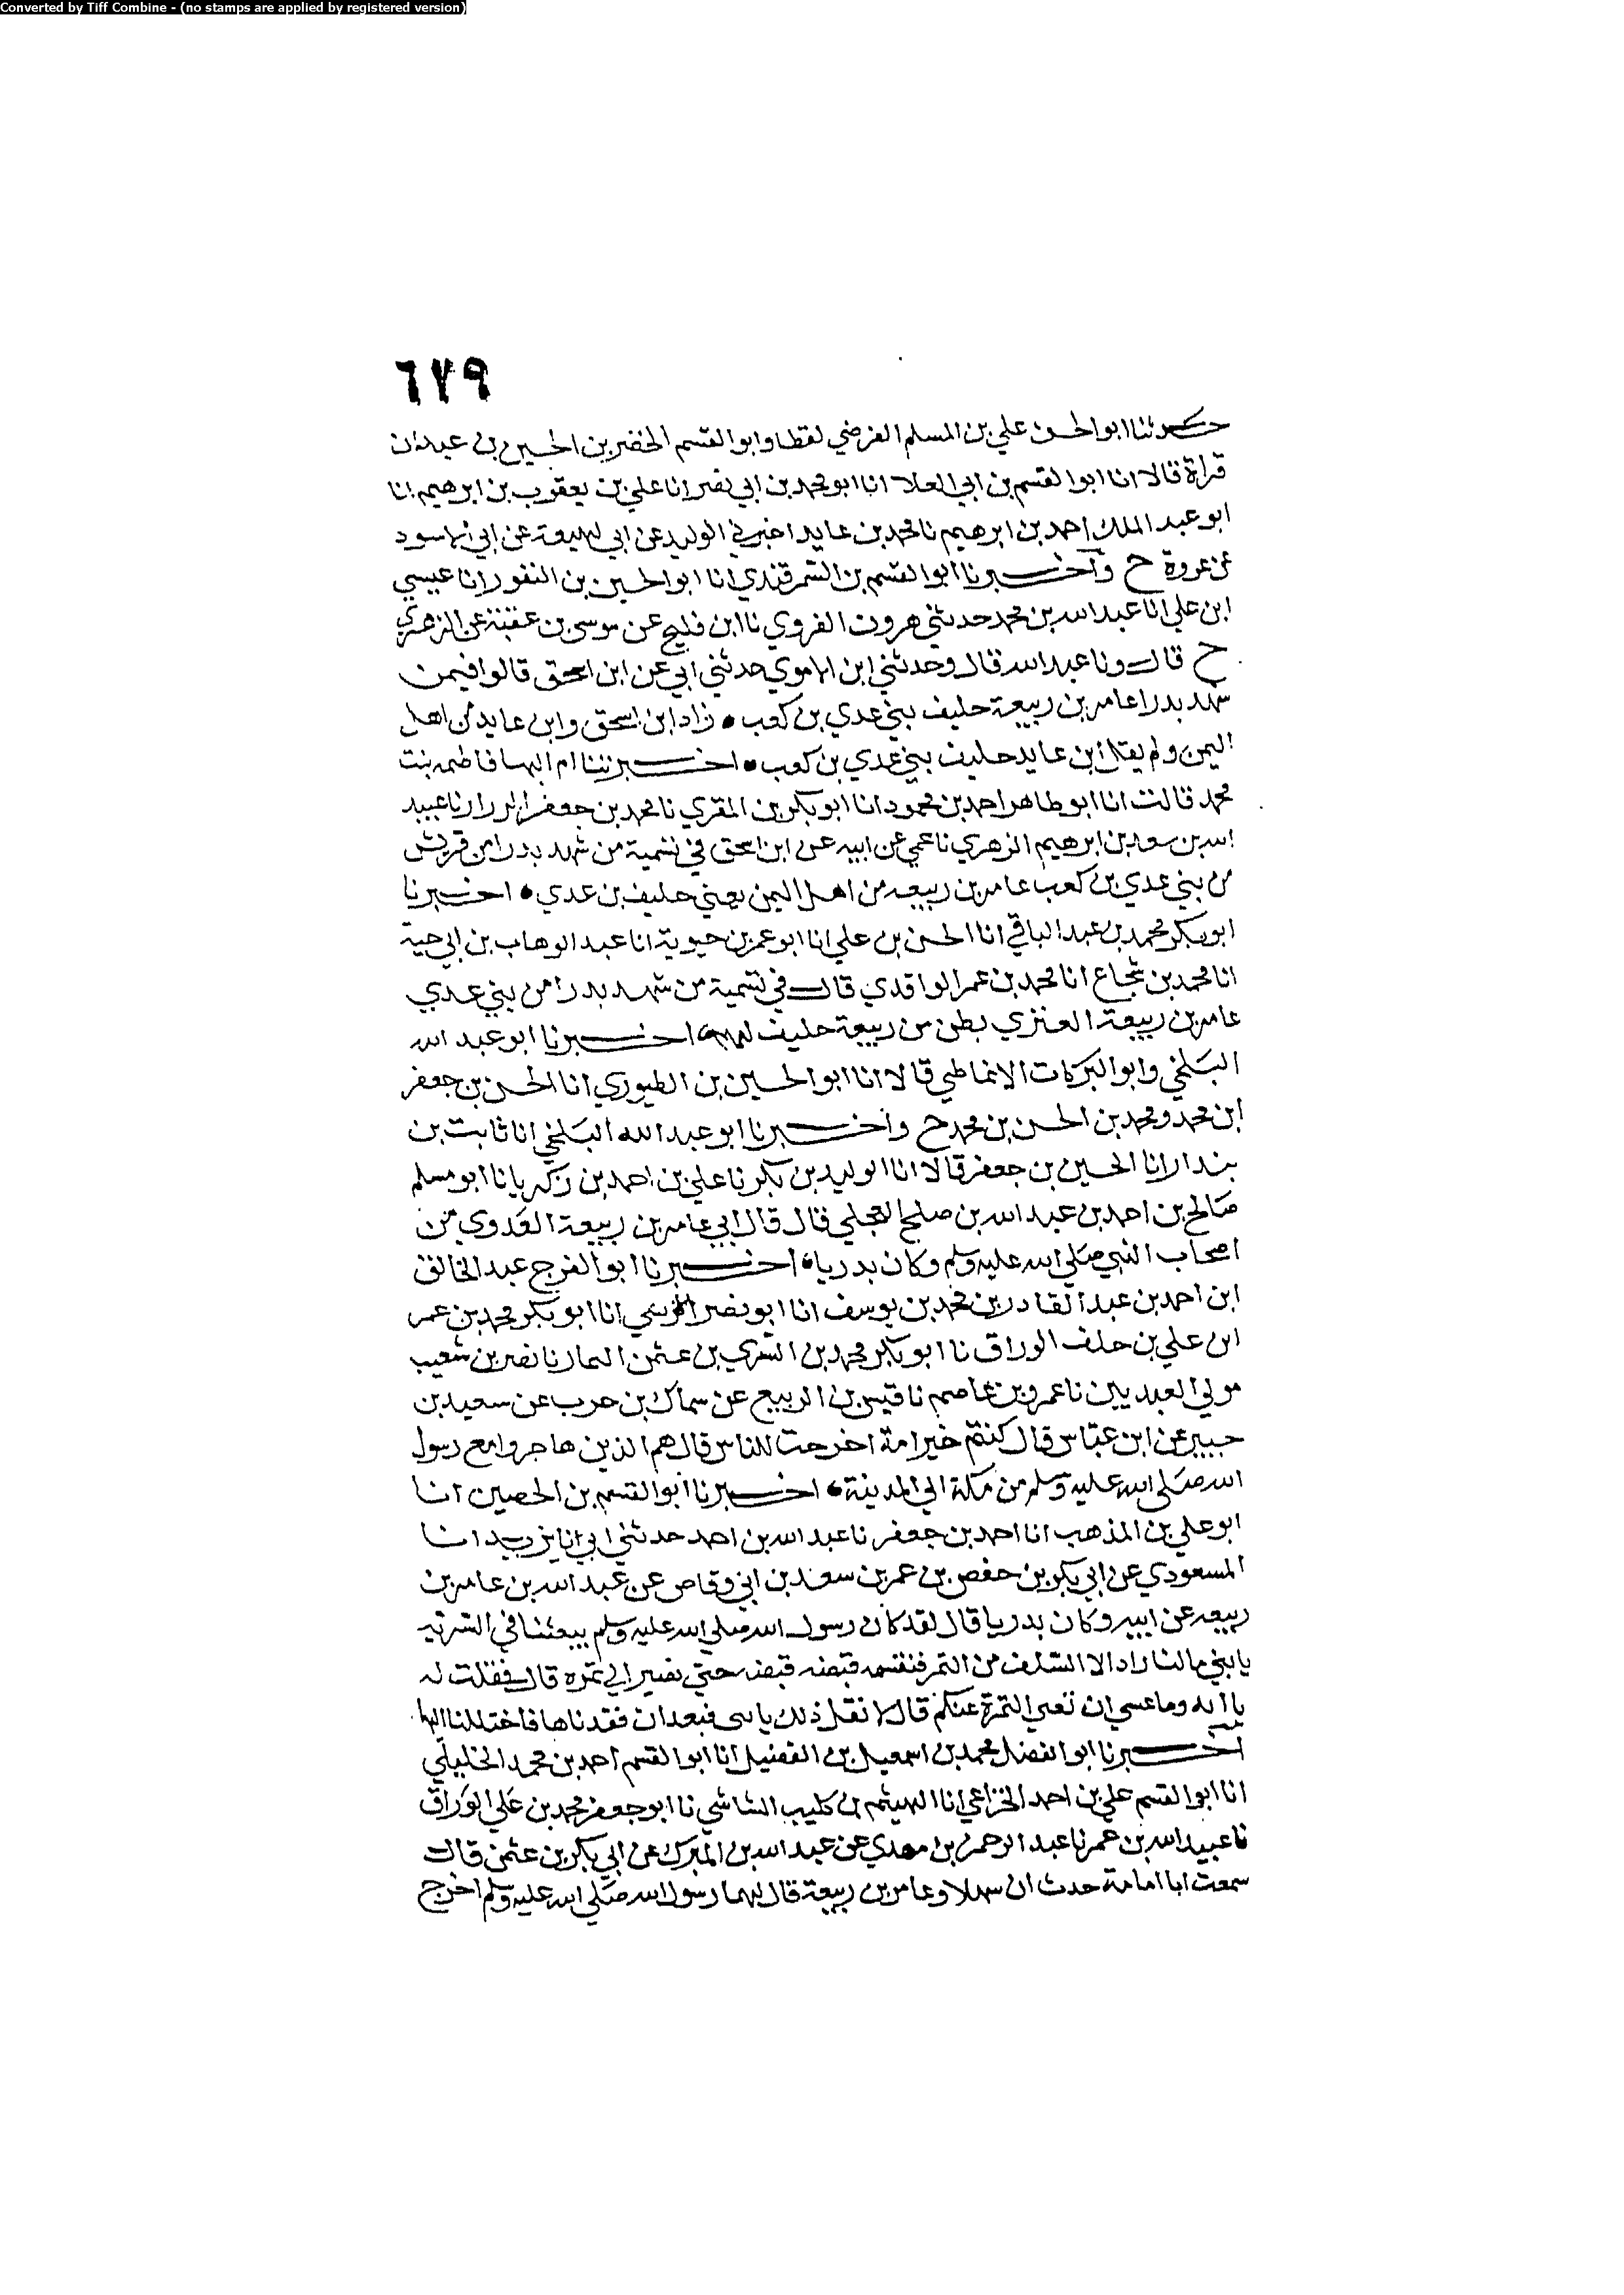 Converted by Tiff Combine - (no stamps are applied by registered version)
٦٧٩
حدثنا ابوالحسن علي بن المسلم الفرضي لفظا وابوالقسم الخضر بن الحسين بن عبدان
قراة قالا انا ابوالقسم بن ابي العلا انا ابومحمد بن ابي نصر انا علي بن يعقوب بن ابرهيم انا
ابوعبد الملك احمد بن ابرهيم نا محمد بن عايد اخبرني الوليد عن ابي لهيعة عن ابي الاسود
عن عروة ح واخبرنا ابوالقسم بن السمرقندي انا ابوالحسين بن النقور انا عيسي
ابن علي انا عبدالله بن محمد حدثني هرون الفروي نا ابن فليح عن موسى بن عقبة عن الزهري
ح قال ونا عبدالله قال وحدثني ابن الاموي حدثني ابي عن ابن اسحق قالوا فيمن
شهد بدرا عامر بن ربيعة حليف بني عدي بن كعب • زاد ابن اسحق وابن عايد من اهل
اليمن ولم يقل ابن عايد حليف بني عدي بن كعب • اخبرتنا ام البها فاطمه بنت
محمد قالت انا ابوطاهر احمد بن محمود انا ابوبكر بن المقري نا محمد بن جعفر الزراد نا عبيد
الله بن سعد بن ابرهيم الزهري نا عمي عن ابيه عن ابن اسحق في تسمية من شهد بدرا من قريش
من بني عدي بن كعب عامر بن ربيعه من اهل اليمن يعني حليف بن عدي • اخبرنا
ابوبكر محمد بن عبد الباقي انا الحسن بن علي انا ابوعمر بن حيوية انا عبد الوهاب بن ابي حية
انا محمد بن شجاع انا محمد بن عمر الواقدي قال في تسمية من شهد بدرا من بني عدي
عامر بن ربيعة العنزي بطن من ربيعة حليف لهم • اخبرنا ابو عبد الله
البلخي وابوالبركات الانماطي قالا انا ابوالحسين بن الطيوري انا الحسن بن جعفر
ابن محمد ومحمد بن الحسن بن محمد ح واخبرنا ابوعبد الله البلخي انا ثابت بن
بندار انا الحسين بن جعفر قالا انا الوليد بن بكر نا علي بن احمد بن زكريا نا ابو مسلم
صالح بن احمد بن عبد الله بن صلح العجلي قال قال ابي عامر بن ربيعة العدوي من
اصحاب النبي صلي الله عليه وسلم وكان بدريا • اخبرنا ابوالفرج عبد الخالق
ابن احمد بن عبد القادر بن محمد بن يوسف انا ابونصر الزينبي انا ابوبكر محمد بن عمر
ابن علي بن خلف الوراق نا ابوبكر محمد بن السري بن عثمن التمار نا نصر بن شعيب
مولي العبديين نا عمرو بن عاصم نا قيس بن الربيع عن سماك بن حرب عن سعيد بن
جبير عن ابن عباس قال كنتم خير امة اخرجت للناس قال هم الذين هاجروا مع رسول
الله صلى الله عليه وسلم من مكة الي المدينة • اخبرنا ابوالقسم بن الحصين انا
ابوعلي بن المذهب انا احمد بن جعفر نا عبد الله بن احمد حدثني ابي انا يزيد انا
المسعودي عن ابي بكر بن حفص بن عمر بن سعد بن ابي وقاص عن عبد الله بن عامر بن
ربيعه عن ابيه وكان بدريا قال لقد كان رسول الله صلي الله عليه وسلم يبعثنا في السرية
يا بني مالنا زاد الا السلف من التمر فنقسمه قبضه قبضه حتي نصير الي تمره تمره قال فقلت له
يا ابه وما عسي ان تغني التمرة عنكم قال لا تقل ذلك يا بني فبعد ان فقدناها فاختللنا اليها
اخبرنا ابوالفضل محمد بن اسمعيل بن الفضيل انا ابوالقسم احمد بن محمد الخليلي
انا ابوالقسم علي بن احمد الخزاعي انا الهيثم بن كليب الشاشي نا ابوجعفر محمد بن علي الوراق
نا عبيد الله بن عمر نا عبد الرحمن بن مهدي عن عبد الله بن المبرك عن ابي بكر بن عثمن قال
سمعت ابا امامة حدث ان سهلا وعامر بن ربيعة قال لهما رسول الله صلي الله عليه وسلم اخرج